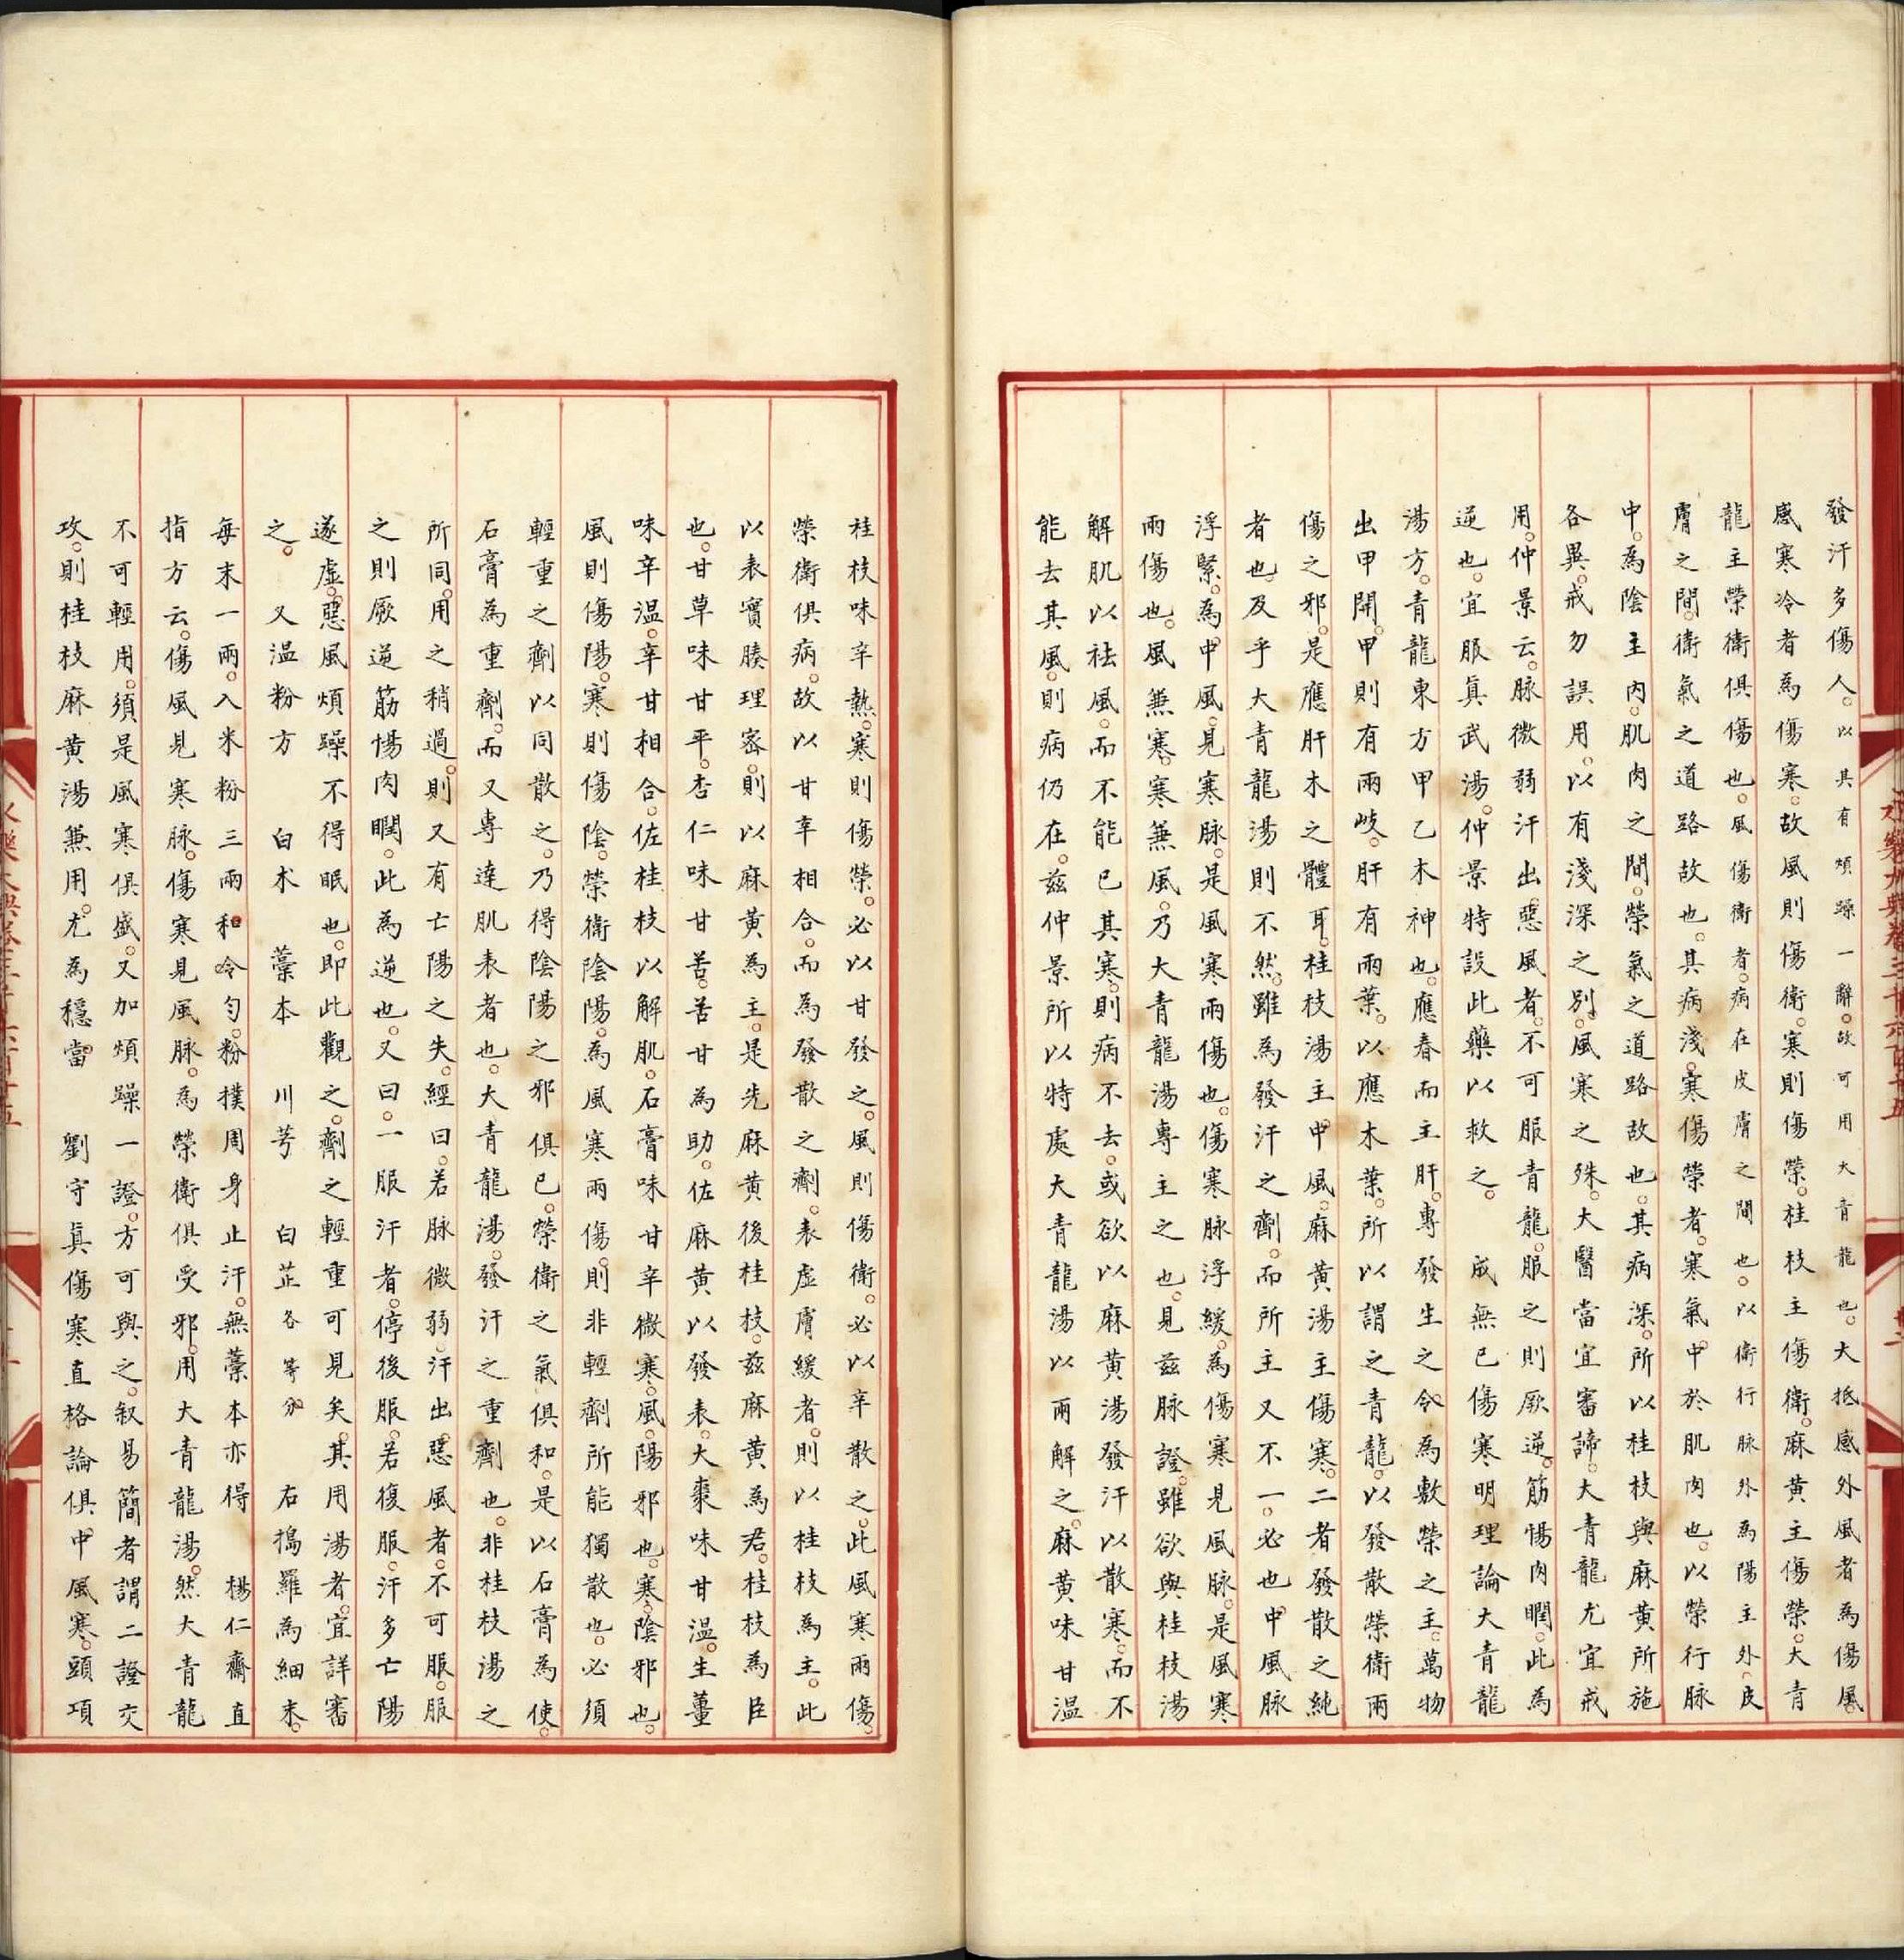 發汗多傷人。以其有煩躁一辭。故可用大青龍也。大抵感外風者為傷風。
感寒冷者為傷寒。故風則傷衛。寒則傷榮。桂枝主傷衛。麻黃主傷榮。大青
龍主榮衛俱傷也。風傷衛者。病在皮膚之間也。以衛行脉外為陽主外。皮
膚之間。衛氣之道路故也。其病淺。寒傷榮者。寒氣中於肌肉也。以榮行脉
中。為陰主內。肌肉之間。榮氣之道路故也。其病深。所以桂枝與麻黃所施
各異。戒勿誤用。以有淺深之別。風寒之殊。大醫當宜審諦。大青龍尤宜戒
用。仲景云。脉微弱汗出惡風者。不可服青龍。服之則厥逆。筋惕肉瞤。此為
逆也。宜服真武湯。仲景特設此藥以救之。 成無已傷寒明理論大青龍
湯方。青龍東方甲乙木神也。應春而主肝。專發生之令。為敷榮之主。萬物
出甲開。甲則有兩岐。肝有兩葉。以應木葉。所以謂之青龍。以發散榮衛兩
傷之邪。是應肝木之體耳。桂枝湯主中風。麻黃湯主傷寒。二者發散之純
者也。及乎大青龍湯則不然。雖為發汗之劑。而所主又不一。必也中風脉
浮緊。為中風見寒脉。是風寒兩傷也。傷寒脉浮緩。為傷寒見風脉。是風寒
兩傷也。風兼寒。寒兼風。乃大青龍湯專主之也。見茲脉證。雖欲與桂枝湯
解肌以祛風。而不能已其寒。則病不去。或欲以麻黃湯發汗以散寒。而不
能去其風。則病仍在。茲仲景所以特處大青龍湯以兩解之。麻黃味甘溫
桂枝味辛熱。寒則傷榮。必以甘發之。風則傷衛。必以辛散之。此風寒兩傷。
榮衛俱病。故以甘辛相合。而為發散之劑。表虛膚緩者。則以桂枝為主。此
以表實腠理密。則以麻黃為主。是先麻黃後桂枝。茲麻黃為君。桂枝為臣
也。甘草味甘平。杏仁味甘苦。苦甘為助。佐麻黃以發表。大棗味甘溫。生薑
味辛溫。辛甘相合。佐桂枝以解肌。石膏味甘辛微寒。風。陽邪也。寒。陰邪也。
風則傷陽。寒則傷陰。榮衛陰陽。為風寒兩傷。則非輕劑所能獨散也。必須
輕重之劑以同散之。乃得陰陽之邪俱已。榮衛之氣俱和。是以石膏為使。
石膏為重劑。而又專達肌表者也。大青龍湯。發汗之重劑也。非桂枝湯之
所同。用之稍過。則又有亡陽之失。經曰。若脉微弱。汗出惡風者。不可服。服
之則厥逆筋惕肉瞤。此為逆也。又曰。一服汗者。停後服。若復服。汗多亡陽
遂虛。惡風煩躁不得眠也。即此觀之。劑之輕重可見矣。其用湯者。宜詳審
之。 又溫粉方 白朮 藁本 川芎 白芷各等分 右搗羅為細末。
每末一兩。入米粉三兩和令勻。粉撲周身止汗。無藁本亦得 楊仁齋直
指方云。傷風見寒脉。傷寒見風脉。為榮衛俱受邪。用大青龍湯。然大青龍
不可輕用。須是風寒俱盛。又加煩躁一證。方可與之。叙易簡者謂二證交
攻。則桂枝麻黃湯兼用。尤為穩當 劉守真傷寒直格論俱中風寒。頭項